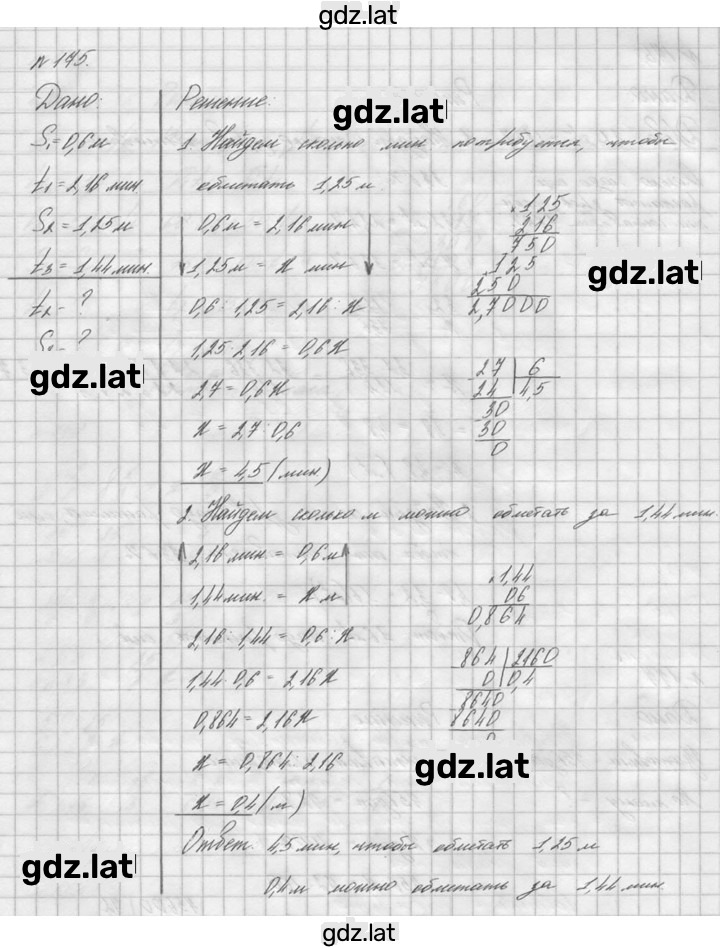 gdz.lat
№ 175.
Дано:
S₁=0,6м
t₁=2,16 мин
S₂=1,25м
t₃=1,44мин.
t₂ - ?
- ?
gdz.lat
Решение:
gdz.lat
1. Найдем сколько мин потребуется, чтобы
обметать 1,25 м.
0,6м = 2,16 мин
1,25м = x мин
0,6 : 1,25 = 2,16 : x
1,25·2,16 = 0,6x
2,7 = 0,6x
x = 2,7 : 0,6
x = 4,5 (мин)
1,25
216
750
125
250
2,7000
gdz.lat
27 6
24 4,5
30
30
0
2. Найдем сколько м можно обметать за 1,44 мин.
2,16 мин. = 0,6м
1,44мин. = x м
2,16 : 1,44 = 0,6 : x
1,44·0,6 = 2,16x
0,864 = 2,16x
x = 0,864 : 2,16
x = 0,4 (м)
1,44
0,6
0,864
864 2160
0 0,4
8640
8640
0
gdz.lat
Ответ: 4,5 мин, чтобы обметать 1,25 м
0,4м можно обметать за 1,44 мин.
gdz.lat
gdz.lat